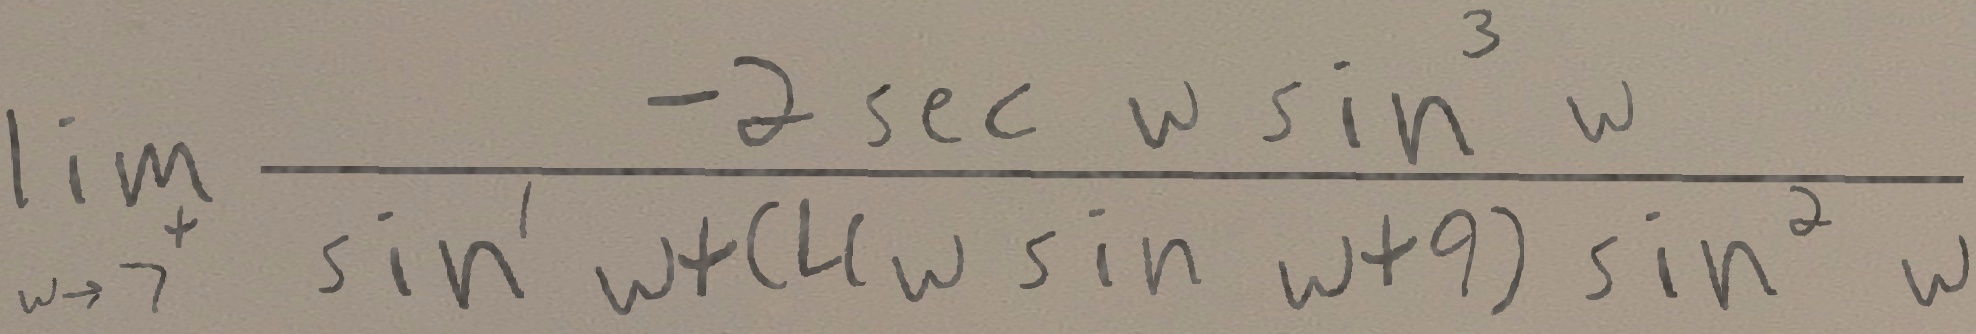 \lim_{w \to 7^+} \frac{-2 \sec w \sin^3 w}{\sin^1 w + (4w \sin w + 9) \sin^2 w}